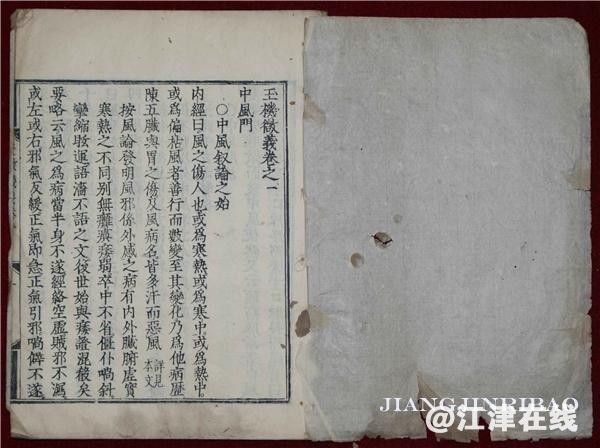 玉機微義卷之一
中風門
○中風叙論之始
内經曰風之傷人也或為寒熱或為寒中或為熱中
或為偏枯風者善行而數變至其變化乃為他病歷
陳五臟與胃之傷及風病名皆多汗而惡風詳見本文
按風論發明風邪係外感之病有内外臟腑虚實
寒熱之不同别無癱瘓痿弱卒中不省僵仆喎斜
攣縮眩運語濇不語之文後世始與痿證混稱矣
要略云風之為病當半身不遂經絡空虚賊邪不瀉
或左或右邪氣反緩正氣即急正氣引邪喎僻不遂
JIANGJINRIBAO
@江津在线